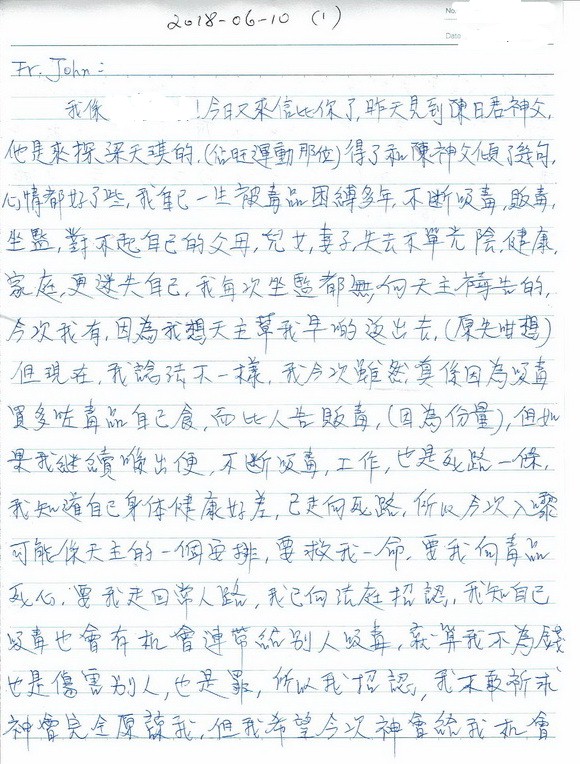 2018-06-10 (1)
No.
Date
Fr. John:
我係 !今日又來信比你了,昨天見到陳日君神父,
他是來探梁天琪的,(佔旺運動那位)得了和陳神父傾了幾句,
心情都好了些,我自己一生被毒品困縛多年,不斷吸毒,販毒,
坐監,對不起自己的父母,兒女,妻子,失去不單光陰,健康,
家庭,更迷失自己,我每次坐監都無向天主禱告的,
今次我有,因為我想天主幫我早啲返出去,(原先咁想)
但現在,我諗法不一樣,我今次雖然真係因為吸毒
買多咗毒品自己食,而比人告販毒,(因為份量),但如
果我繼續喺出便,不斷吸毒,工作,也是死路一條,
我知道自己身体健康好差,已走向死路,所以今次入嚟
可能係天主的一個安排,要救我一命,要我向毒品
死心,要我走回常人路,我已向法庭招認,我知自己
吸毒也會有机會連帶給別人吸毒,就算我不為錢
也是傷害別人,也是罪,所以我招認,我不敢祈求
神會完全原諒我,但我希望今次神會給我机會